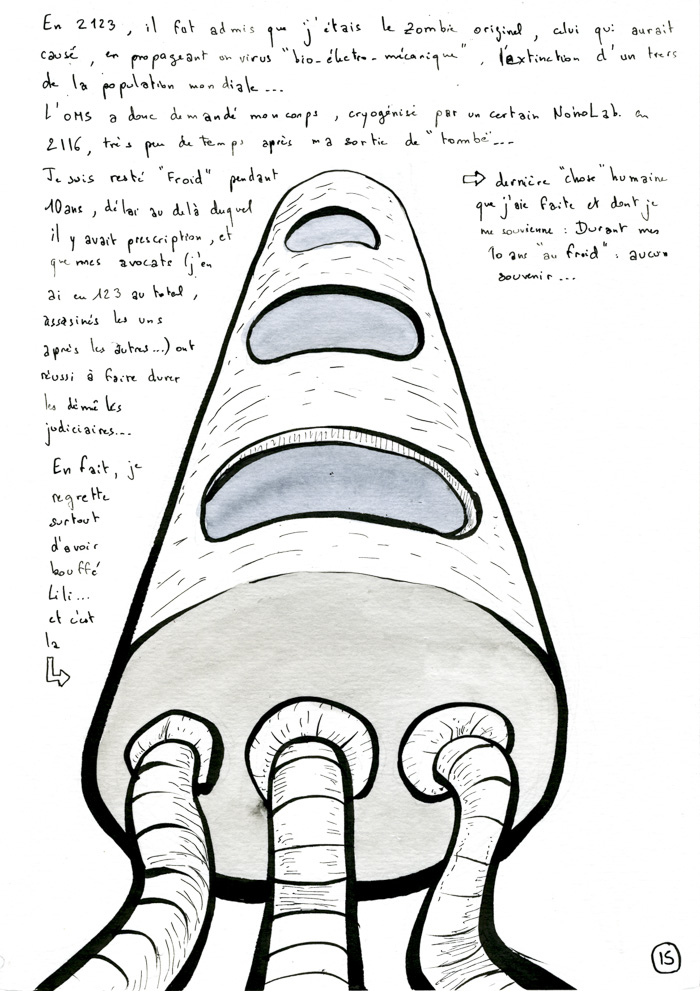 En 2123, il fut admis que j'étais le Zombie originel, celui qui aurait
causé, en propageant un virus "bio-électro-mécanique", l'extinction d'un tiers
de la population mondiale...
L'OMS a donc demandé mon corps, cryogénisé par un certain NonoLab. en
2116, très peu de temps après ma sortie de "tombe"...
Je suis resté "Froid" pendant
10 ans, délai au delà duquel
il y avait prescription, et
que mes avocats (j'en
ai eu 123 au total,
assasinés les uns
après les autres...) ont
réussi à faire durer
les démêlés
judiciaires...
En fait, je
regrette
surtout
d'avoir
bouffé
Lili...
et c'est
la
⇨ dernière "chose" humaine
que j'aie faite et dont je
me souvienne : Durant mes
10 ans "au froid" : aucun
souvenir...
15